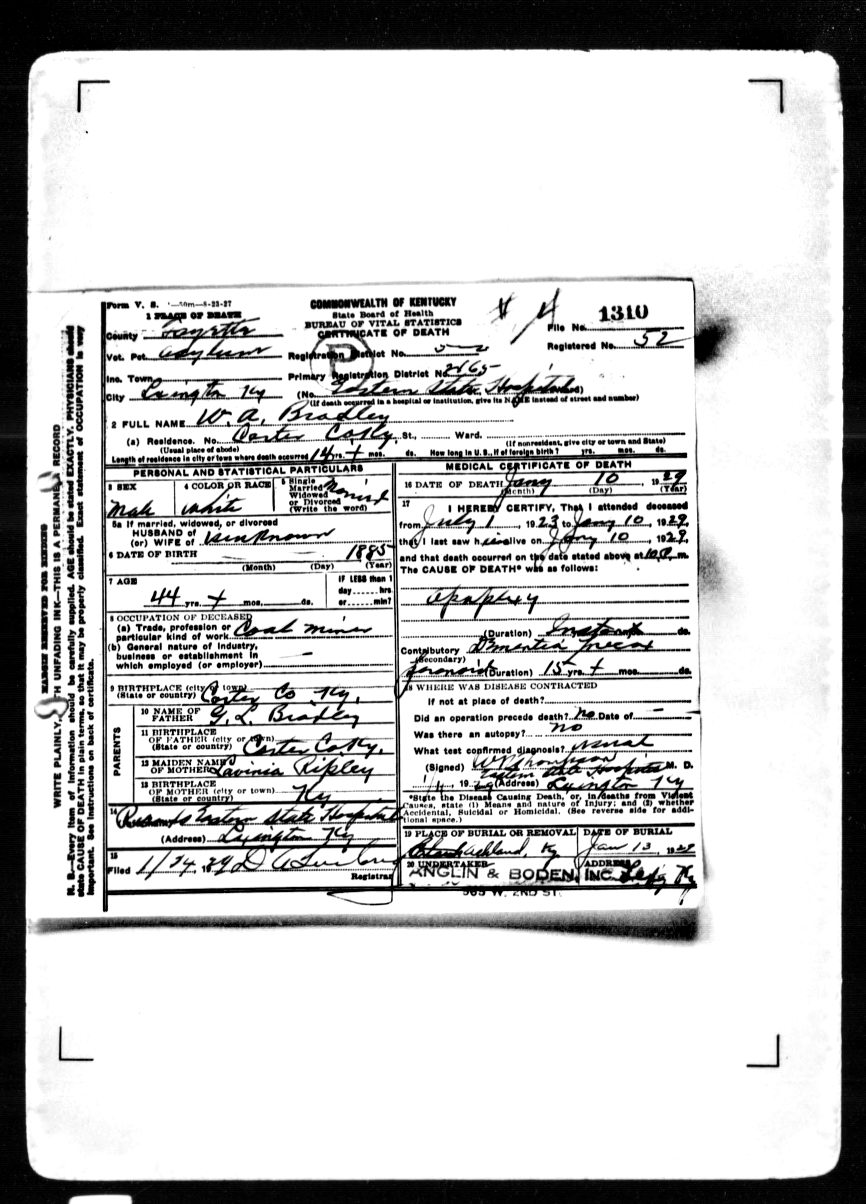 Form V. S. 1—50m—8-23-27
COMMONWEALTH OF KENTUCKY
State Board of Health
BUREAU OF VITAL STATISTICS
CERTIFICATE OF DEATH
File No. 1310
Registered No. 52
1 PLACE OF DEATH
County Fayette
Vot. Pct. Asylum
Registration District No. 52
Inc. Town
Primary Registration District No. 2165
City Lexington Ky
(No. Eastern State Hospital
(If death occurred in a hospital or institution, give its NAME instead of street and number)
2 FULL NAME W. A. Bradley
(a) Residence. No. Carter Co Ky, St., Ward.
(Usual place of abode)
(If nonresident, give city or town and State)
Length of residence in city or town where death occurred 14 yrs. + mos. ds. How long in U. S., if of foreign birth? yrs. mos. ds.
PERSONAL AND STATISTICAL PARTICULARS
3 SEX
Male
4 COLOR OR RACE
White
5 Single
Married
Widowed
or Divorced
(Write the word)
Married
5a If married, widowed, or divorced
HUSBAND of
(or) WIFE of unknown
6 DATE OF BIRTH 1885
(Month) (Day) (Year)
7 AGE
44 yrs. + mos. ds.
IF LESS than 1
day hrs.
or min?
8 OCCUPATION OF DECEASED
(a) Trade, profession or
particular kind of work Coal miner
(b) General nature of industry,
business or establishment in
which employed (or employer) —
9 BIRTHPLACE (city or town)
(State or country) Carter Co Ky.
PARENTS
10 NAME OF
FATHER G. L. Bradley
11 BIRTHPLACE
OF FATHER (city or town)
(State or country) Carter Co Ky.
12 MAIDEN NAME
OF MOTHER Lavinia Ripley
13 BIRTHPLACE
OF MOTHER (city or town)
(State or country) Ky
14
Records Eastern State Hospital
(Address) Lexington Ky
15
Filed 1/24, 1929
Registrar
MEDICAL CERTIFICATE OF DEATH
16 DATE OF DEATH Jany 10, 1929
(Month) (Day) (Year)
17
I HEREBY CERTIFY, That I attended deceased
from July 1, 1923 to Jany 10, 1929,
that I last saw him alive on Jany 10 1929,
and that death occurred on the date stated above at 10 P. m.
The CAUSE OF DEATH* was as follows:
Apoplexy
(Duration) Instant ds.
Contributory Dementia Precox
(Secondary)
paranoid (Duration) 15 yrs. + mos. ds.
18 WHERE WAS DISEASE CONTRACTED
If not at place of death?
Did an operation precede death? no Date of —
Was there an autopsy? no
What test confirmed diagnosis? usual
(Signed) W Thompson M. D.
Eastern State Hospital
1/11, 1929 (Address) Lexington Ky
*State the Disease Causing Death, or, in deaths from Violent
Causes, state (1) Means and nature of Injury; and (2) whether
Accidental, Suicidal or Homicidal. (See reverse side for addi-
tional space.)
19 PLACE OF BURIAL OR REMOVAL
Ashland, Ky
DATE OF BURIAL
Jan 13, 1929
20 UNDERTAKER
ANGLIN & BODEN, INC.
565 W. 2ND ST.
ADDRESS
Lex Ky
MARGIN RESERVED FOR BINDING
WRITE PLAINLY, WITH UNFADING INK—THIS IS A PERMANENT RECORD
N. B.—Every item of information should be carefully supplied. AGE should be stated EXACTLY. PHYSICIANS should
state CAUSE OF DEATH in plain terms, so that it may be properly classified. Exact statement of OCCUPATION is very
important. See instructions on back of certificate.